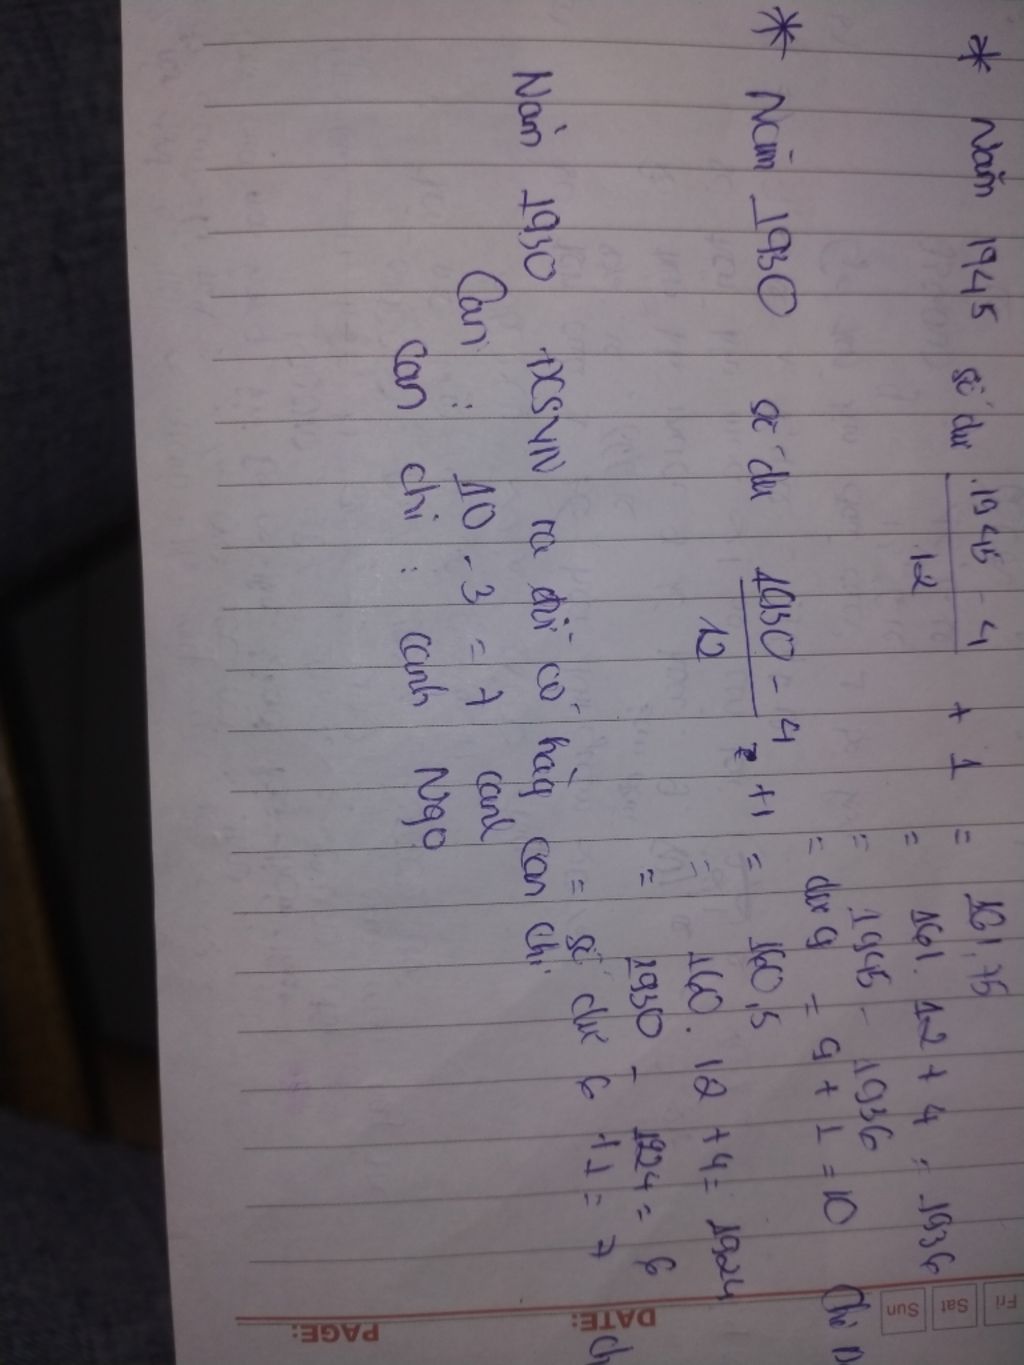 * Năm 1945 số dư 1945 - 4 + 1 = 161,75
12
= 161. 12 + 4 = 1936
= 1945 - 1936
= dư 9 = 9 + 1 = 10 Chi
* Năm 1930 số dư 1930 - 4 + 1 = 160,5
12
= 160. 12 + 4 = 1924
= 1930 - 1924 = 6
= số dư 6 + 1 = 7
Năm 1930 ĐCSVN ra đời có hàg Can chi
Can : 10 - 3 = 7 canh
Can chi : canh Ngọ
Fri Sat Sun
DATE:
PAGE: